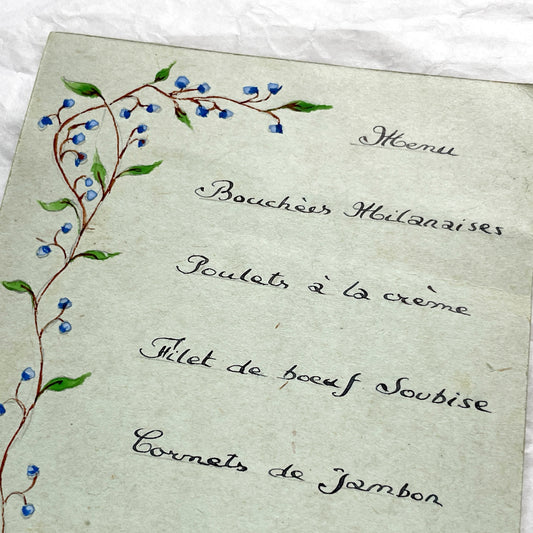 Menu
Bouchées Milanaises
Poulets à la crème
Filet de boeuf Soubise
Cornets de Jambon